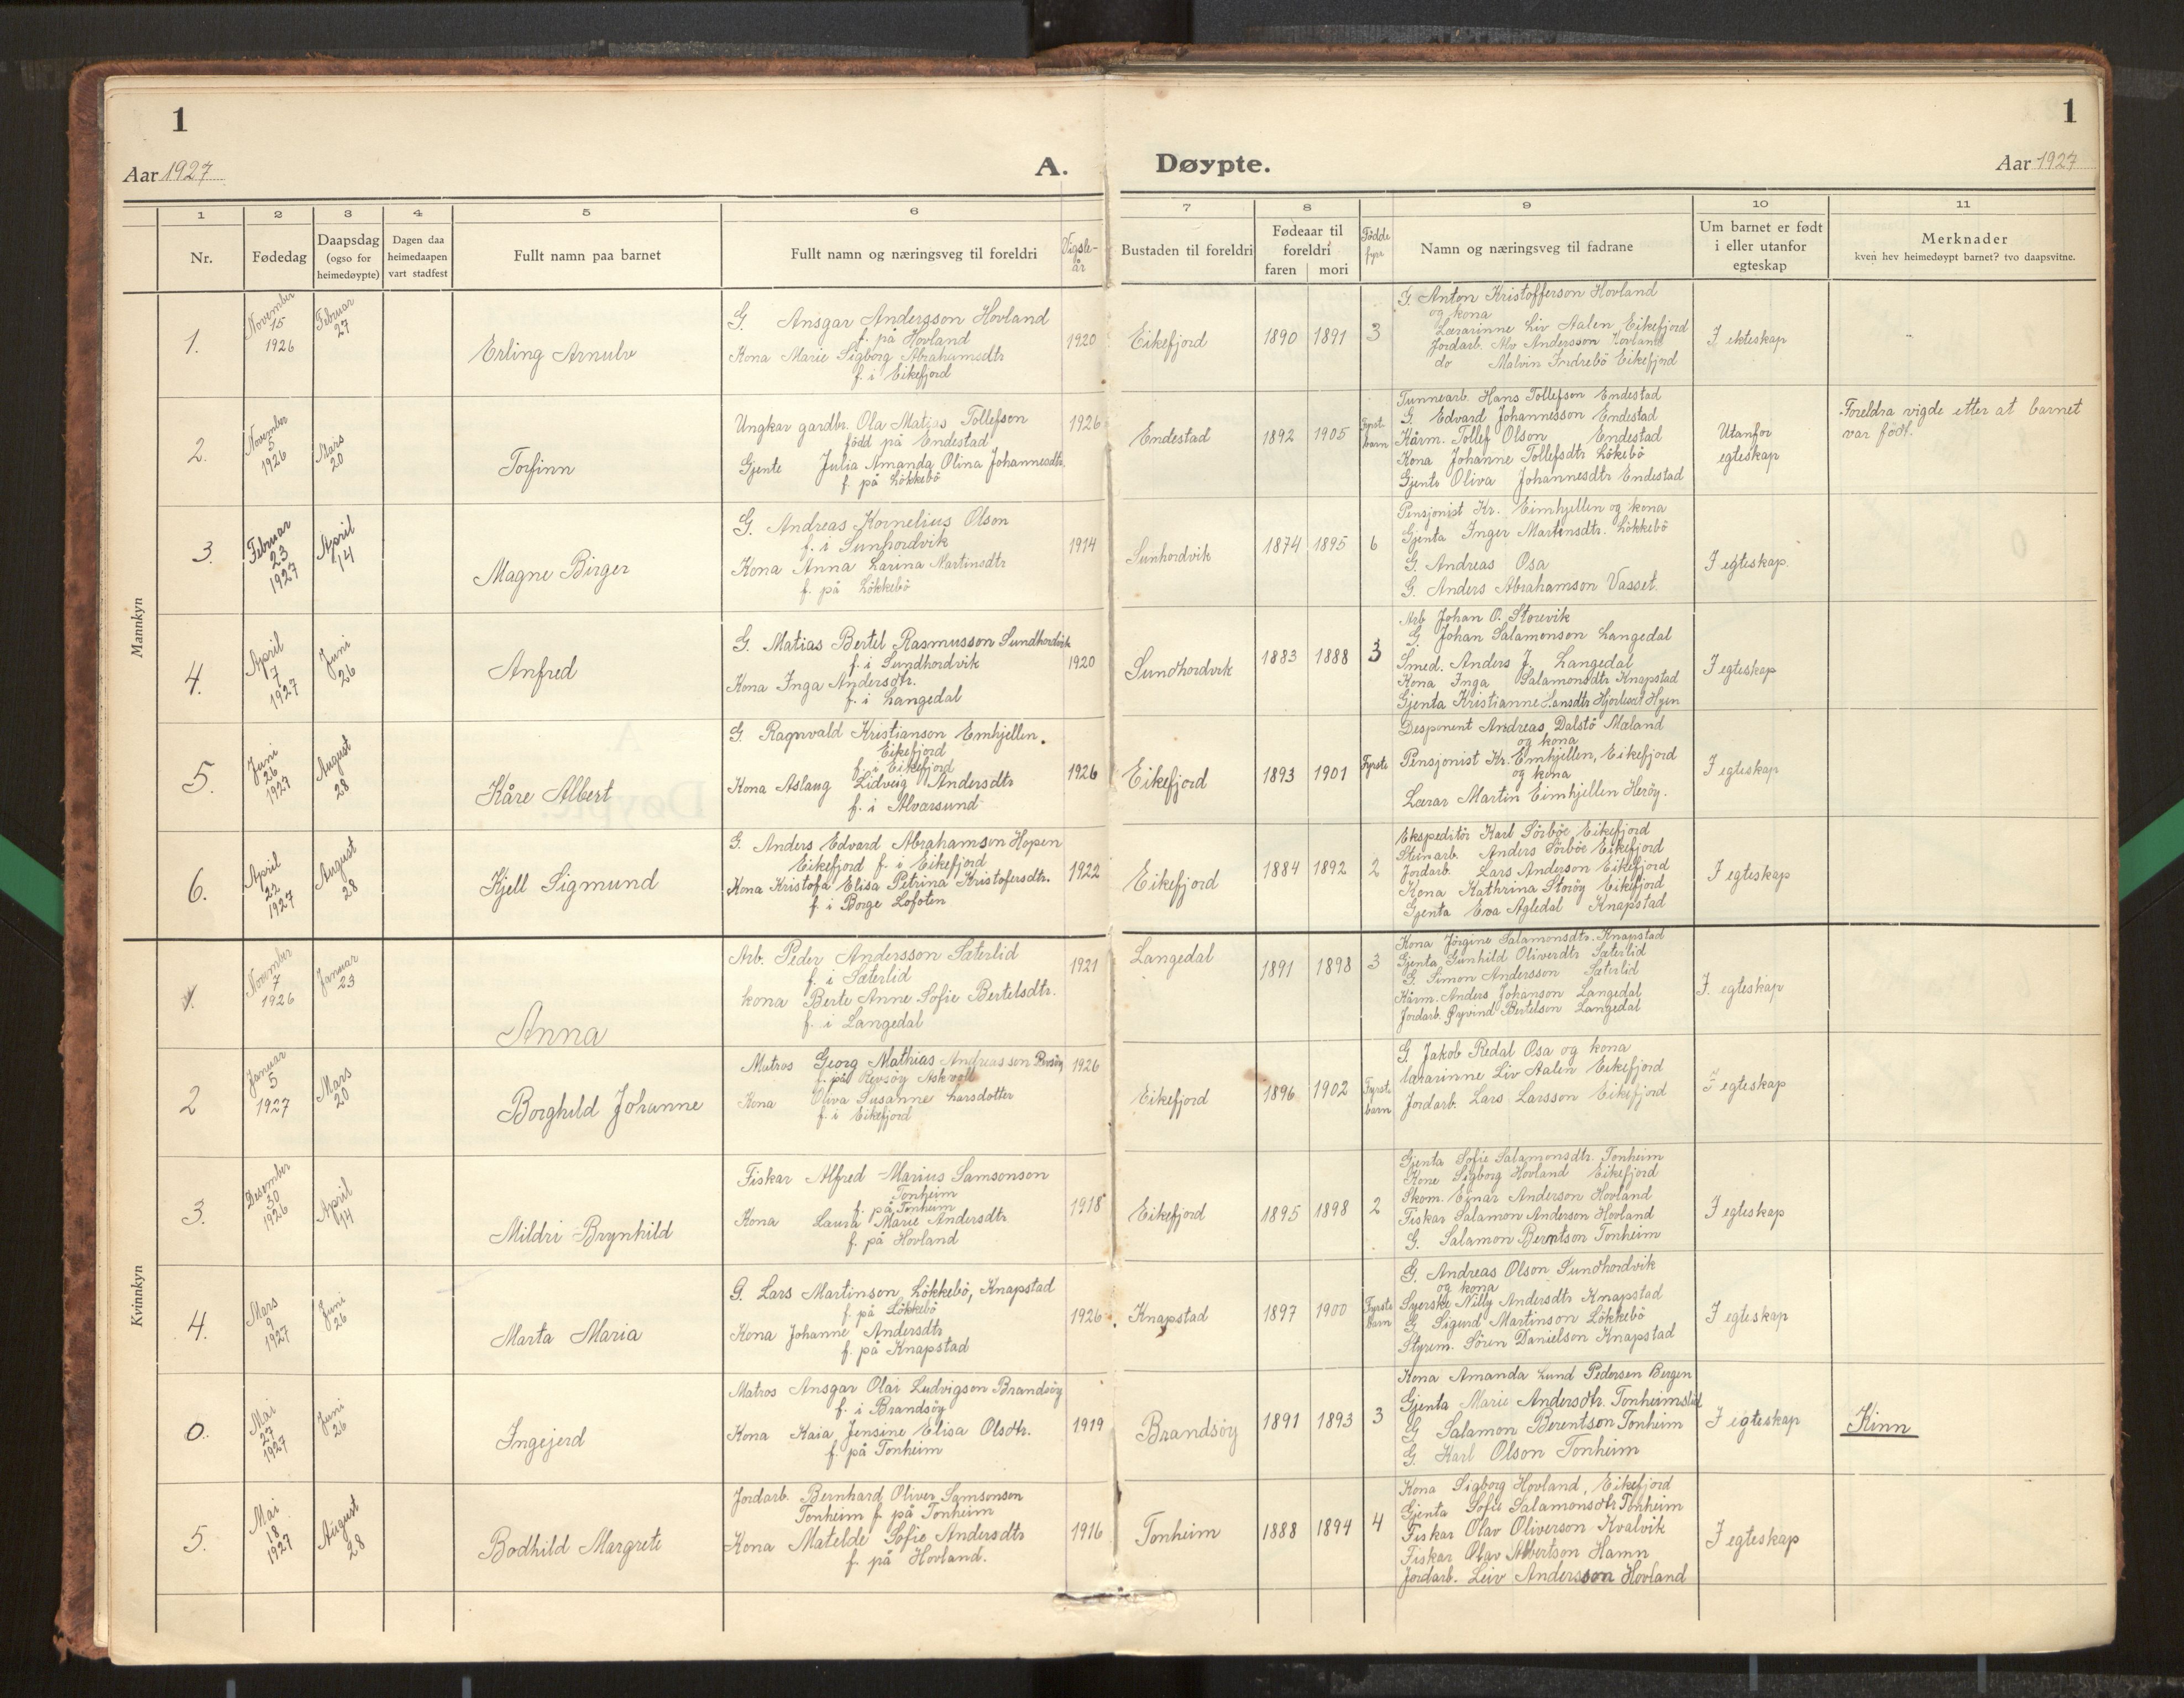 1
1
Aar 1927
A.
Døypte.
Aar 1927
1
2
3
4
5
6
7
8
9
10
11
Nr.
Fødedag
Daapsdag
(ogso for
heimedøypte)
Dagen daa
heimedaapen
vart stadfest
Fullt namn paa barnet
Fullt namn og næringsveg til foreldri
Vigsle-
år
Bustaden til foreldri
Fødeaar til
foreldri
faren mori
Fødde
fyrr
Namn og næringsveg til fadrane
Um barnet er født
i eller utanfor
egteskap
Merknader
kven hev heimedøypt barnet? tvo daapsvitne.
Mannkyn
1.
November
15
1926
Februar
27
Erling Arnulv
G. Ansgar Andersson Hovland
f. på Hovland
Kona Marie Sigborg Abrahamsdtr
f. i Eikefjord
1920
Eikefjord
1890
1891
3
G. Anton Kristofferson Hovland
og kona
Lærarinne Liv Aalen Eikefjord
Jordarb. Andersson Hovland
do Malvin Indrebö Eikefjord
I ekteskap
2.
November
5
1926
Mars
20
Torfinn
Ungkar gardbr. Ola Matias Tollefson
född på Endestad
Gjente Julia Amanda Olina Johannesdtr.
f. på Lökkebö
1926
Endestad
1892
1905
Fyrst-
barn
Tunnearb. Hans Tollefson Endestad
G. Edvard Johannesson Endestad
Kårm. Tollef Olson Endestad
Kona Johanne Tollefsdtr Lökebö
Gjente Oliva Johannesdtr Endestad
Utanfor
egteskap
Foreldra vigde etter at barnet
var födt.
3.
Februar
23
1927
April
14
Magne Birger
G. Andreas Kornelius Olson
f. i Sunhordvik
Kona Anna Larina Martinsdtr
f. på Lökkebö
1914
Sunhordvik
1874
1895
6
Pensjonist Kr. Eimhjellen og kona
Gjenta Inger Martinsdtr. Lökkebö
G. Andreas Osa
G. Anders Abrahamson Vasset.
I egteskap.
4.
April
7
1927
Juni
26
Anfred
G. Matias Bertel Rasmusson Sundhordvik
f. i Sundhordvik
Kona Inga Andersdtr.
f. i Langedal
1920
Sundhordvik
1883
1888
3
Arb Johan O. Storevik
G. Johan Salamonson Langedal
Smed. Anders J. Langedal
Kona Inga Salamonsdtr Knapstad
Gjenta Kristianne Hansdtr Hjorteset Hyen
I egteskap
5.
Juni
26
1927
August
28
Kåre Albert
G. Ragnvald Kristianson Emhjellen.
Eikefjord
f. i Eikefjord
Kona Aslaug Lidveig Andersdtr
f. i Alvarsund
1926
Eikefjord
1893
1901
Fyrste
Desponent Andreas Dalstö Mæland
og kona
Pensjonist Kr. Emhjellen, Eikefjord
og kona
Lærar Martin Eimhjellen Heröy.
I egteskap
6.
April
22
1927
August
28
Kjell Sigmund
G. Anders Edvard Abrahamson Hopen
Eikefjord f. i Eikefjord
Kona Kristofa Elisa Petrina Kristofersdtr.
f. i Borge Lofoten
1922
Eikefjord
1884
1892
2
Ekspeditör Karl Sörböe Eikefjord
Steinarb. Anders Sörböe Eikefjord
Jordarb. Lars Anderson Eikefjord
Kona Kathrina Storöy Eikefjord
Gjenta Eva Agledal Knapstad
I egteskap
Kvinnkyn
1.
November
7
1926
Januar
23
Anna
Arb. Peder Andersson Sæterlid
f. i Sæterlid
kona Berte Anne Sofie Bertelsdtr.
f. i Langedal
1921
Langedal
1891
1898
3
Kona Jörgine Salamonsdtr. Knapstad
Gjenta Gunhild Oliverdtr Sæterlid
G. Simon Andersson Sæterlid
Kårm. Anders Johanson Langedal
Jordarb. Øyvind Bertelson Langedal
I egteskap
2
Januar
5
1927
Mars
20
Borghild Johanne
Matros Georg Mathias Andreasson Revsöy
f. på Revsöy Askvoll
Kona Oliva Susanne Larsdotter
f. i Eikefjord
1926
Eikefjord
1896
1902
Fyrste
barn
G. Jakob Redal Osa og kona
lærarinne Liv Aalen Eikefjord
Jordarb. Lars Larsson Eikefjord
I egteskap
3.
Desember
30
1926
April
14
Mildri Brynhild
Fiskar Alfred Marius Samsonson
Tonheim
f. på Tonheim
Kona Laura Marie Andersdtr
f. på Hovland
1918
Eikefjord
1895
1898
2
Gjenta Sofie Salamonsdtr. Tonheim
Kone Sigborg Hovland Eikefjord
Skom. Einar Anderson Hovland
Fiskar Salamon Anderson Hovland
G. Salamon Berntson Tonheim
I egteskap
4.
Mars
9
1927
Juni
26
Marta Maria
G. Lars Martinson Lökkebö, Knapstad
f. på Lökkebö
Kona Johanne Andersdtr
f. på Knapstad
1926
Knapstad
1897
1900
Fyrste
barn
G. Andreas Olson Sundhordvik
og kona
Syerske Nilly Andersdtr Knapstad
G Sigurd Martinson Lökkebö
Styrem. Sören Danielson Knapstad
I egteskap
0.
Mai
27
1927
Juni
26
Ingejerd
Matros Ansgar Olai Ludvigson Brandsöy
f. i Brandsöy
Kona Kaia Jensine Elisa Olsdtr.
f. på Tonheim
1919
Brandsöy
1891
1893
3
Kona Amanda Lund Pedersen Bergen
Gjenta Marie Andersdtr. Tonheimslid
G Salamon Berentson Tonheim
G. Karl Olson Tonheim
I egteskap
Kinn
5.
Mai
18
1927
August
28
Bodhild Margrete
Jordarb. Bernhard Oliver Samsonson
Tonheim f. på Tonheim
Kona Matelde Sofie Andersdtr
f. på Hovland.
1916
Tonheim
1888
1894
4
Kona Sigborg Hovland, Eikefjord
Gjenta Sofie Salamonsdtr Tonheim
Fiskar Olav Oliverson Kvalvik
Fiskar Olav Albertson Hamn
Jordarb. Leiv Andersson Hovland
I egteskap